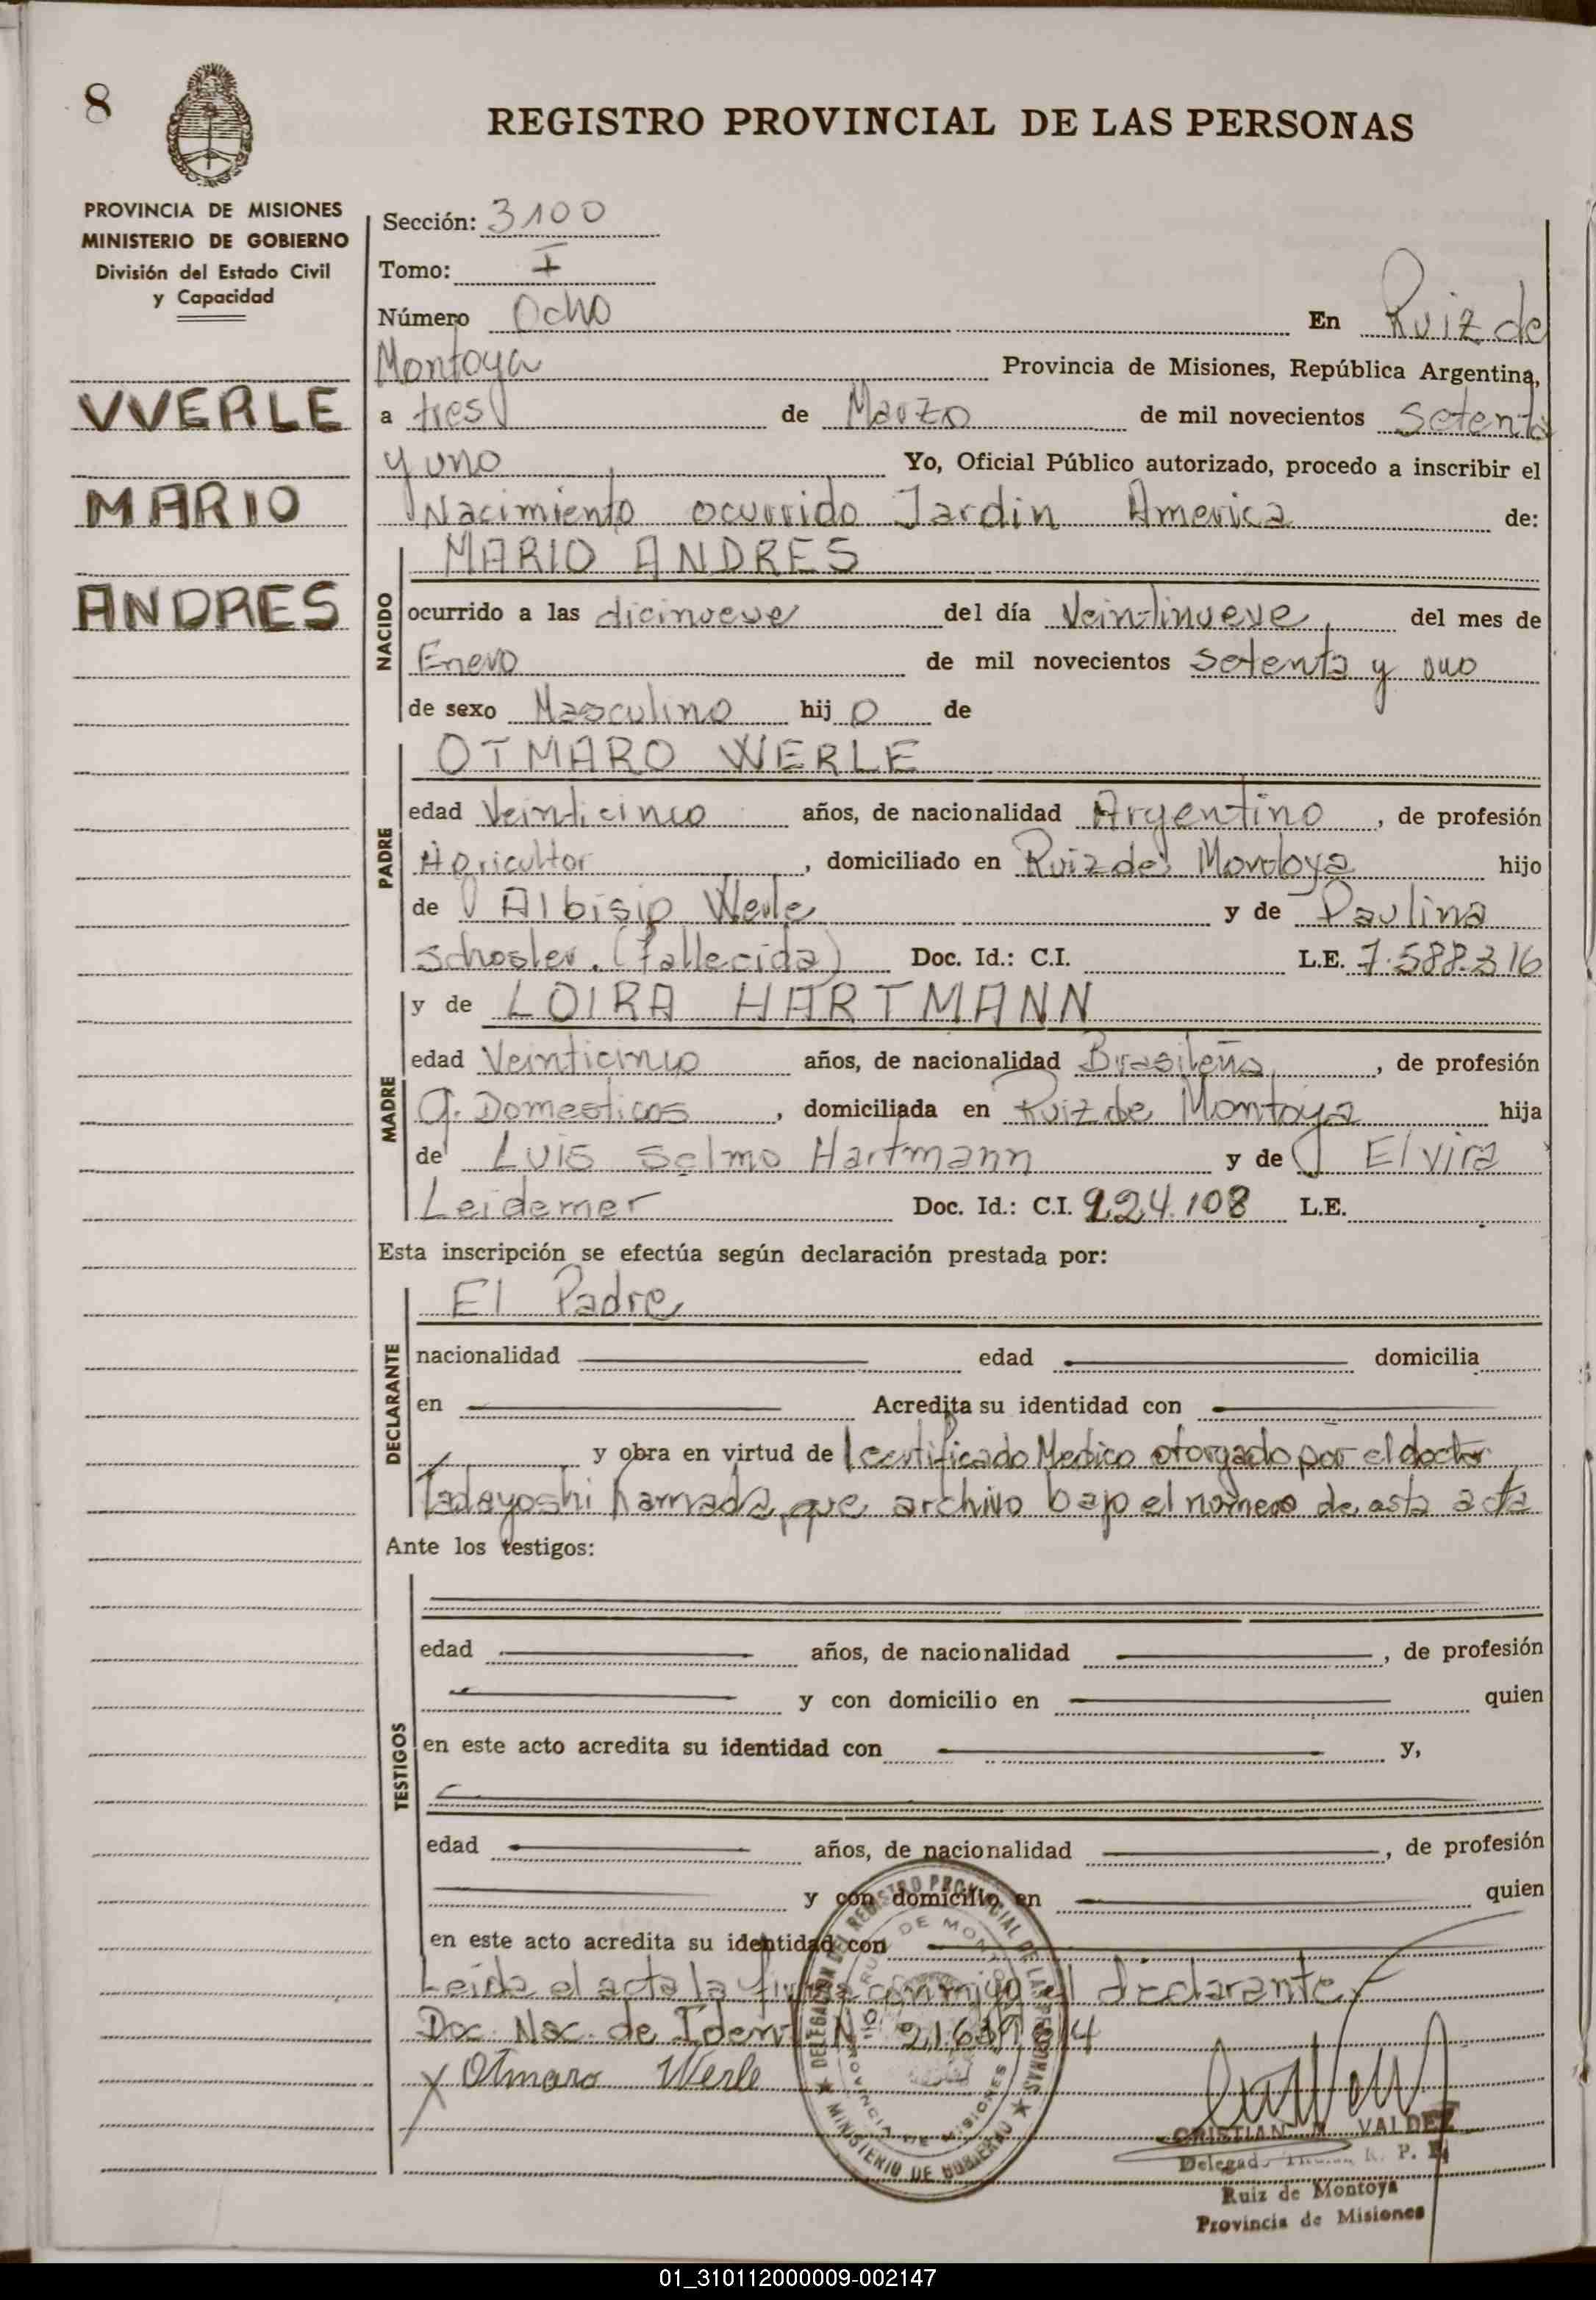 8
REGISTRO PROVINCIAL DE LAS PERSONAS
PROVINCIA DE MISIONES
MINISTERIO DE GOBIERNO
División del Estado Civil
y Capacidad
VVERLE
MARIO
ANDRES
Sección: 3100
Tomo: I
Número Ocho En Ruiz de
Montoya Provincia de Misiones, República Argentina,
a tres de Marzo de mil novecientos Setenta
y uno Yo, Oficial Público autorizado, procedo a inscribir el
Nacimiento ocurrido Jardin America de:
NACIDO
MARIO ANDRES
ocurrido a las dicinueve del día Veintinueve del mes de
Enero de mil novecientos setenta y uno
de sexo Masculino hij o de
PADRE
OTMARO WERLE
edad Veinticinco años, de nacionalidad Argentino, de profesión
Agricultor, domiciliado en Ruiz de Montoya hijo
de Albisio Werle y de Paulina
Schosler. (fallecida) Doc. Id.: C.I. L.E. 7.588.316
MADRE
y de LOIRA HARTMANN
edad Veinticinco años, de nacionalidad Brasileña, de profesión
Q. Domesticos, domiciliada en Ruiz de Montoya hija
de Luis Selmo Hartmann y de Elvira
Leidemer Doc. Id.: C.I. 224.108 L.E.
Esta inscripción se efectúa según declaración prestada por:
DECLARANTE
El Padre
nacionalidad edad domicilia
en Acredita su identidad con
y obra en virtud de l certificado Medico otorgado por el doctor
Tadayoshi hamada, que archivo bajo el número de esta acta
Ante los testigos:
TESTIGOS
edad años, de nacionalidad , de profesión
y con domicilio en quien
en este acto acredita su identidad con y,
edad años, de nacionalidad , de profesión
y con domicilio en quien
en este acto acredita su identidad con
Leida el acta la firma conmigo el declarante
Doc. Nac. de Ident. N 21.639.
X Otmaro Werle
DELEGACION DEL REGISTRO PROVINCIAL DE LAS PERSONAS
MINISTERIO DE GOBIERNO
RUIZ DE MONTOYA
PROVINCIA DE MISIONES
CRISTIAN VALDEZ
Delegado R. P.
Ruiz de Montoya
Provincia de Misiones
01_310112000009-002147